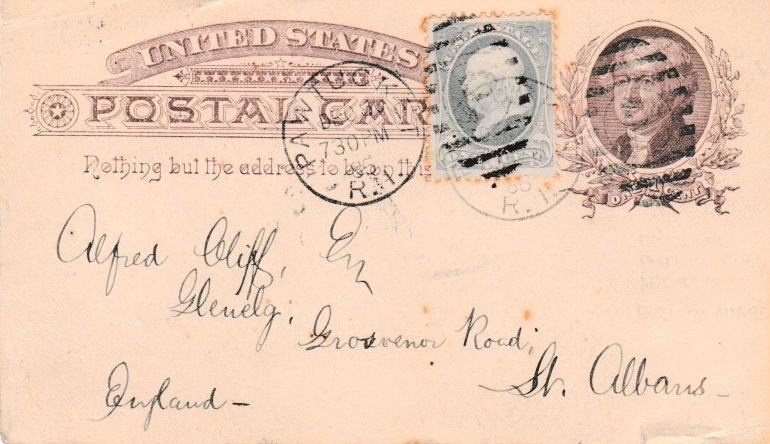 UNITED STATES
POSTAL CAR
Nothing but the address to be on this
PAWTUCKET
DEC
730 PM
85
R.I.
R.I.
ONE CENT
Alfred Cliff, Esq
Glenelg,
Grosvenor Road,
St. Albans -
England -